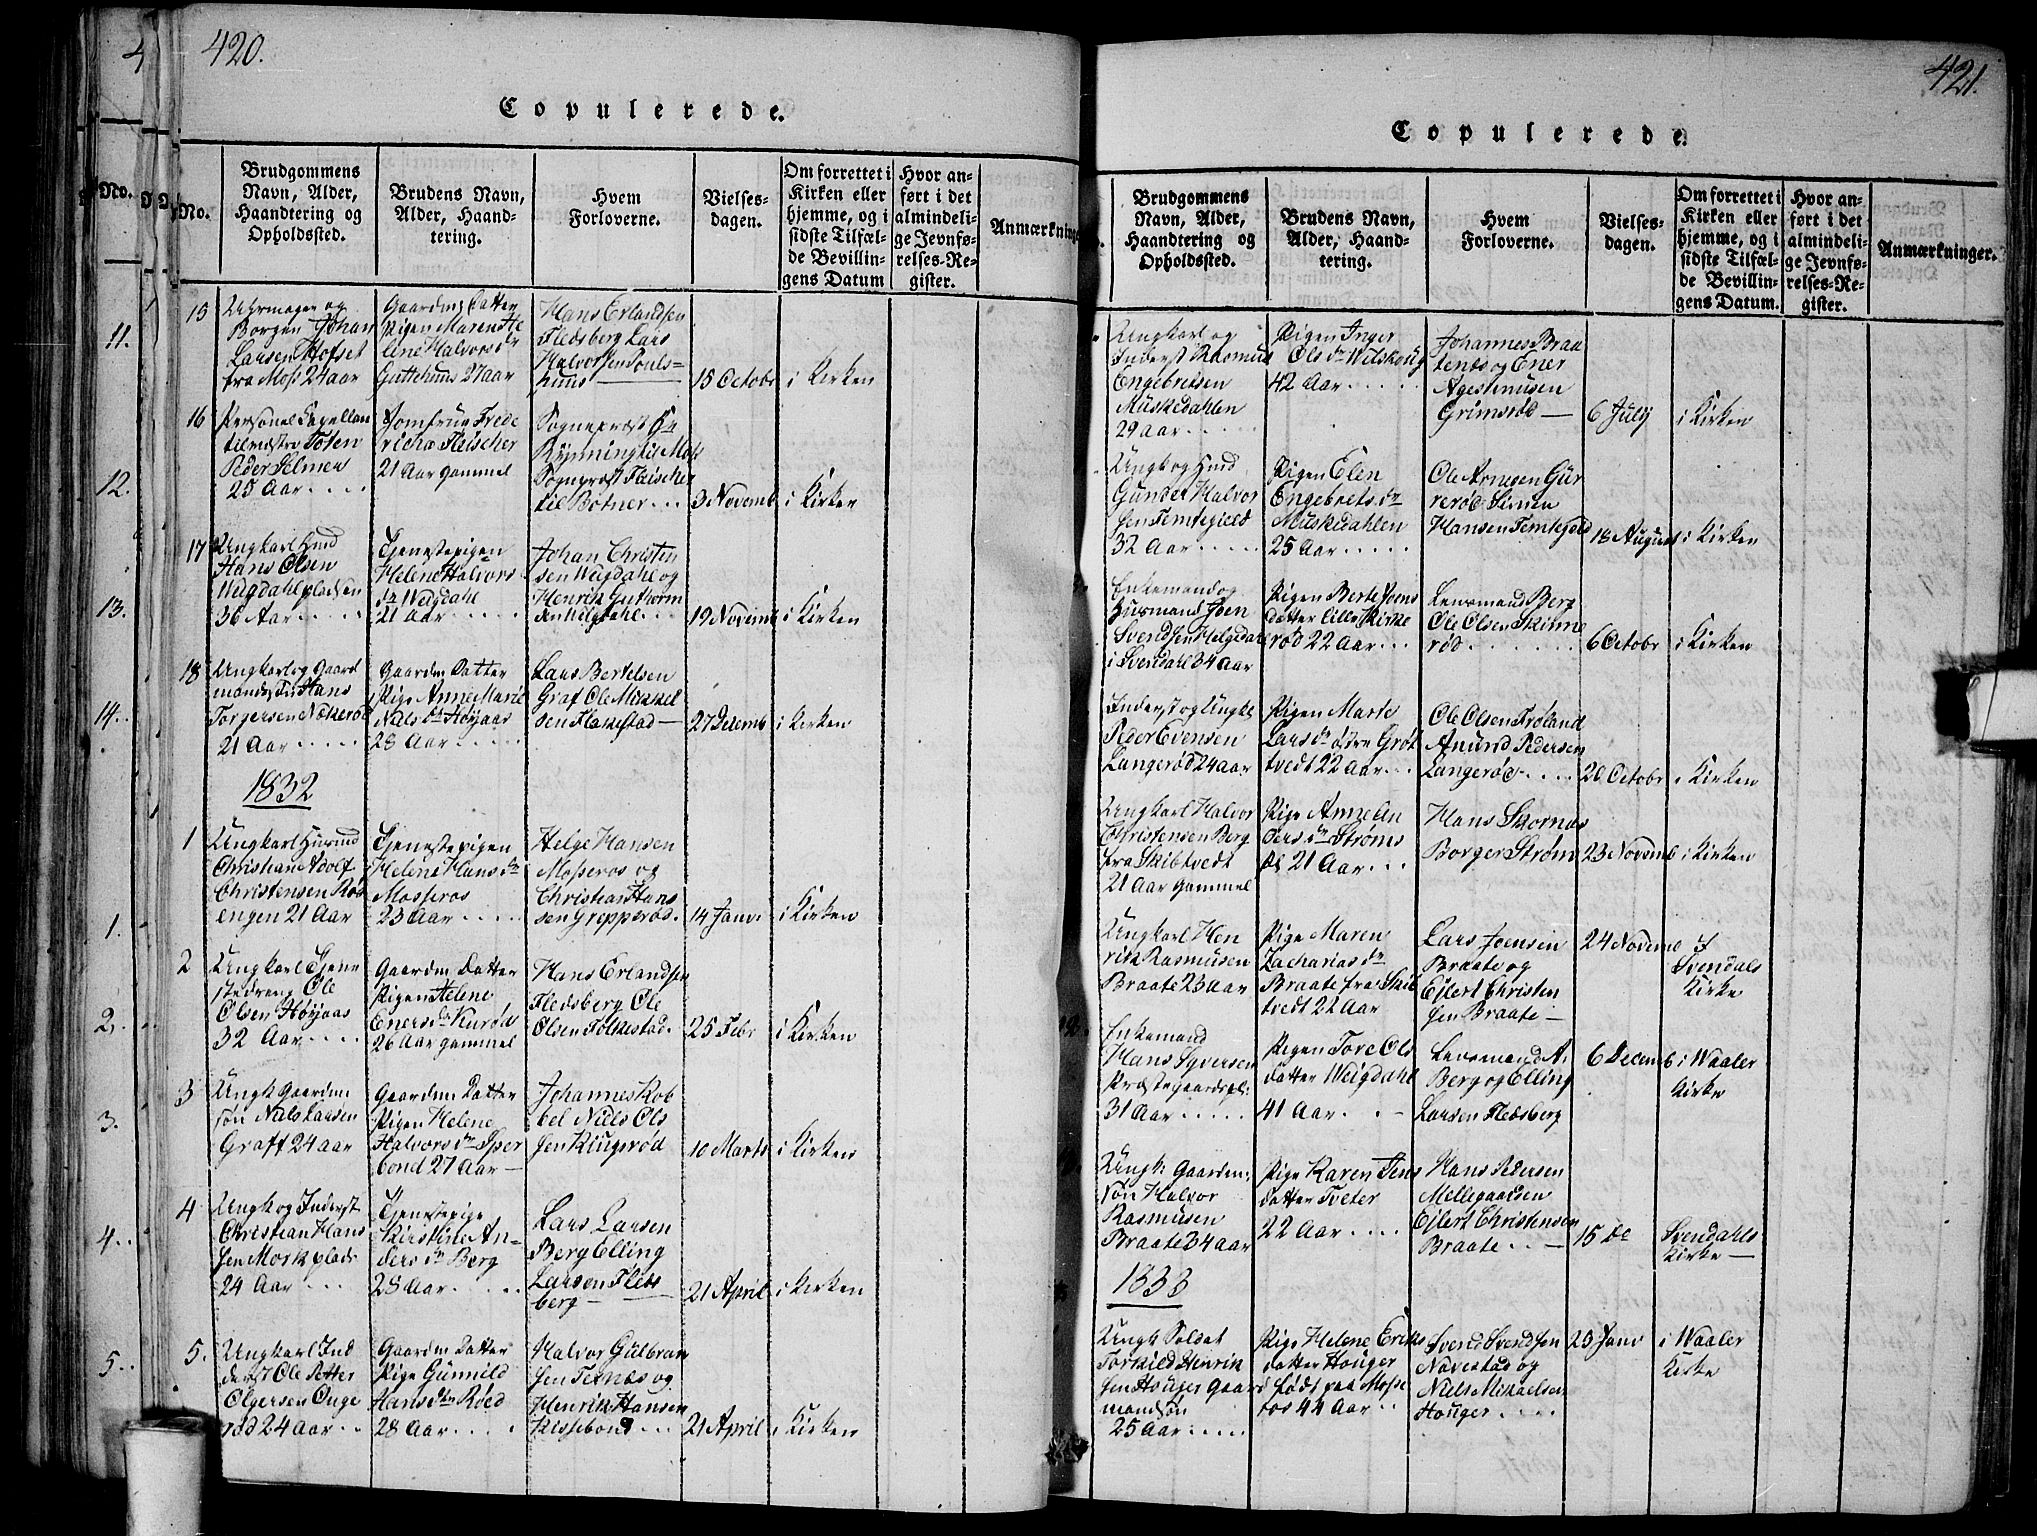 420.
Copulerede.
No.
Brudgommens
Navn, Alder,
Haandtering og
Opholdssted.
Brudens Navn,
Alder, Haand-
tering.
Hvem
Forloverne.
Vielses-
dagen.
Om forrettet i
Kirken eller
hjemme, og i
sidste Tilfæl-
de Bevillin-
gens Datum
Hvor an-
ført i det
almindeli-
ge Jevnfø-
relses-Re-
gister.
Anmærkninge
15
Uhrmager og
Borger Johan
Larsen Hofset
fra Moss 24 aar
Gaardm Datter
Pigen Maren He
lene Halvorsdr
Guttehuus 27 aar
Hans Erlandsen
Fledsberg Lars
Halvorsen Pouls-
huus
15 Octobr
i Kirken
16
Personel Capellan
til østre Toten
Peder Selmer
25 Aar
Jomfrue Frede
richa Fleischer
21 Aar gammel
Sognepræst Hr
Rynning til Moss
Sognepræst Fleischer
til Botner
3 Novemb
i Kirken
17
Ungkarl Husmd
Hans Olsen
Weigdahlpladsen
36 Aar
Tjenestepigen
Helene Halvors
dr Weigdahl
21 aar
Johan Christen
sen Weigdahl og
Henrik Guthorm
sen Weigdahl
19 Novemb
i Kirken
18
Ungkarl og Gaard
mands Søn Hans
Torgersen Nøkerød
21 Aar
Gaardm Datter
Pige Anne Marie
Nielsdr Höyaas
28 Aar
Lars Bertelsen
Graf Ole Mikkel
sen Flakestad
27 Decemb
i Kirken
1832
1
Ungkarl Husmd
Christian Adolf
Christensen Rød
engen 21 Aar
Tjenestepigen
Helene Hansdr
Mosseros
23 Aar
Helge Hansen
Mosseros og
Christian Hans
sen Grepperød.
14 Janv.
i Kirken
2
Ungkarl Tjene
stedreng Ole
Olsen Höyaas
32 Aar
Gaardm Datter
Pigen Helene
Enersdr Kurød
26 Aar gammel
Hans Erlandsen
Fledsberg Ole
Olsen Folkestad.
25 Febr
i Kirken
3
Ungk Gaardm
søn Niels Larsen
Graff 24 aar
Gaardm Datter
Pigen Helene
Halvorsdr Sper
bond 27 Aar
Johannes Rob
bel Niels Ols
sen Kiugerød
10 Marts
i Kirken
4
Ungk og Inderst
Christian Hans
sen Mork plads
24 Aar
Tjenestepige
Kirstine An-
dersdr Berg
28 Aar
Lars Larsen
Berg Elling
Larsen Fleds
berg
21 April
i Kirken
5.
Ungkarl Ind
derst Ole Petter
Olgersen Unge
rød 24 aar
Gaardm Datter
Pige Gunnild
Hansdtr Røed
28 Aar
Halvor Gulbran
sen Ternes og
Henrik Hansen
Kissebond
21 April
i Kirken
421.
Copulerede.
Brudgommens
Navn, Alder,
Haandtering og
Opholdssted.
Brudens Navn,
Alder, Haand-
tering.
Hvem
Forloverne.
Vielses-
dagen.
Om forrettet i
Kirken eller
hjemme, og i
sidste Tilfæl-
de Bevillin-
gens Datum.
Hvor an-
ført i det
almindeli-
ge Jevnfø-
relses-Re-
gister.
Anmærkninger.
Ungkarl og
Inderst Rasmus
Engebretsen
Muskedahlen
29 aar
Pigen Inger
Olsdr Wilskoug
42 Aar
Johannes Braa
tens og Ener
Agestensen
Grimsrød
6 July
i Kirken
Ungk og Husmd
Gunder Halvor
sen Femtegield
32 Aar
Pigen Elen
Engebretsdr
Muskedahlen
25 Aar
Ole Arnesen Gur
rerød Simen
Hansen Femtegield
18 August
i Kirken
Enkemand og
Husmand Joen
Svendsen Helgedal
i Svendahl 34 aar
Pigen Berte Jens
datter lille Kirke
rød 22 Aar
Lensmand Berg
Ole Olsen Skibne
rød
6 Octobr
i Kirken
Inderst og Ungkl
Peder Evensen
Langerød 24 aar
Pigen Marte
Larsdr østre Grøt
tvedt 22 Aar
Ole Olsen Frøland
Amund Pedersen
Langerød
20 Octobr
i Kirken
Ungkarl Halvor
Christensen Berg
fra Skibtvedt
21 Aar gammel
Pige Anne An
dersdr Strøms
21 Aar
Hans Skornæs
Borger Strøm
23 Novemb
i Kirken
Ungkarl Hen
rik Rasmusen
Braate 23 aar
Pige Maren
Zachariasdr
Braate fra Skib
tvedt 22 Aar
Lars Joensen
Braate og
Ejlert Christen
sen Braate
24 Novemb
I
Svendals
Kirke
Enkemand
Hans Syversen
Præstegaardspl:
31 Aar
Pigen Tore Ols
datter Weigdahl
41 Aar.
Lensmand A.
Berg og Elling
Larsen Fledsberg
6 Decemb
i Waaler
Kirke
Ungk Gaardm:
søn Halvor
Rasmusen
Braate 34 aar
Pige Karen Jens
datter Tveter
22 Aar
Hans Pedersen
Mellegaarden
Ejlert Christensen
Braate
15 De
Svendahls
Kirke
1833
Ungk Soldat
Torkild Henrik
sen Houger Gaard
mandssøn
25 Aar
Pige Helene Eriks
datter Houger
født paa Mosse
ros 44 Aar
Svend Svendsen
Navestad og
Niels Mikaelsen
Houger
23 Janv
i Waaler
Kirke
4
No.
11.
12.
13.
14.
1.
2.
3.
4.
5.